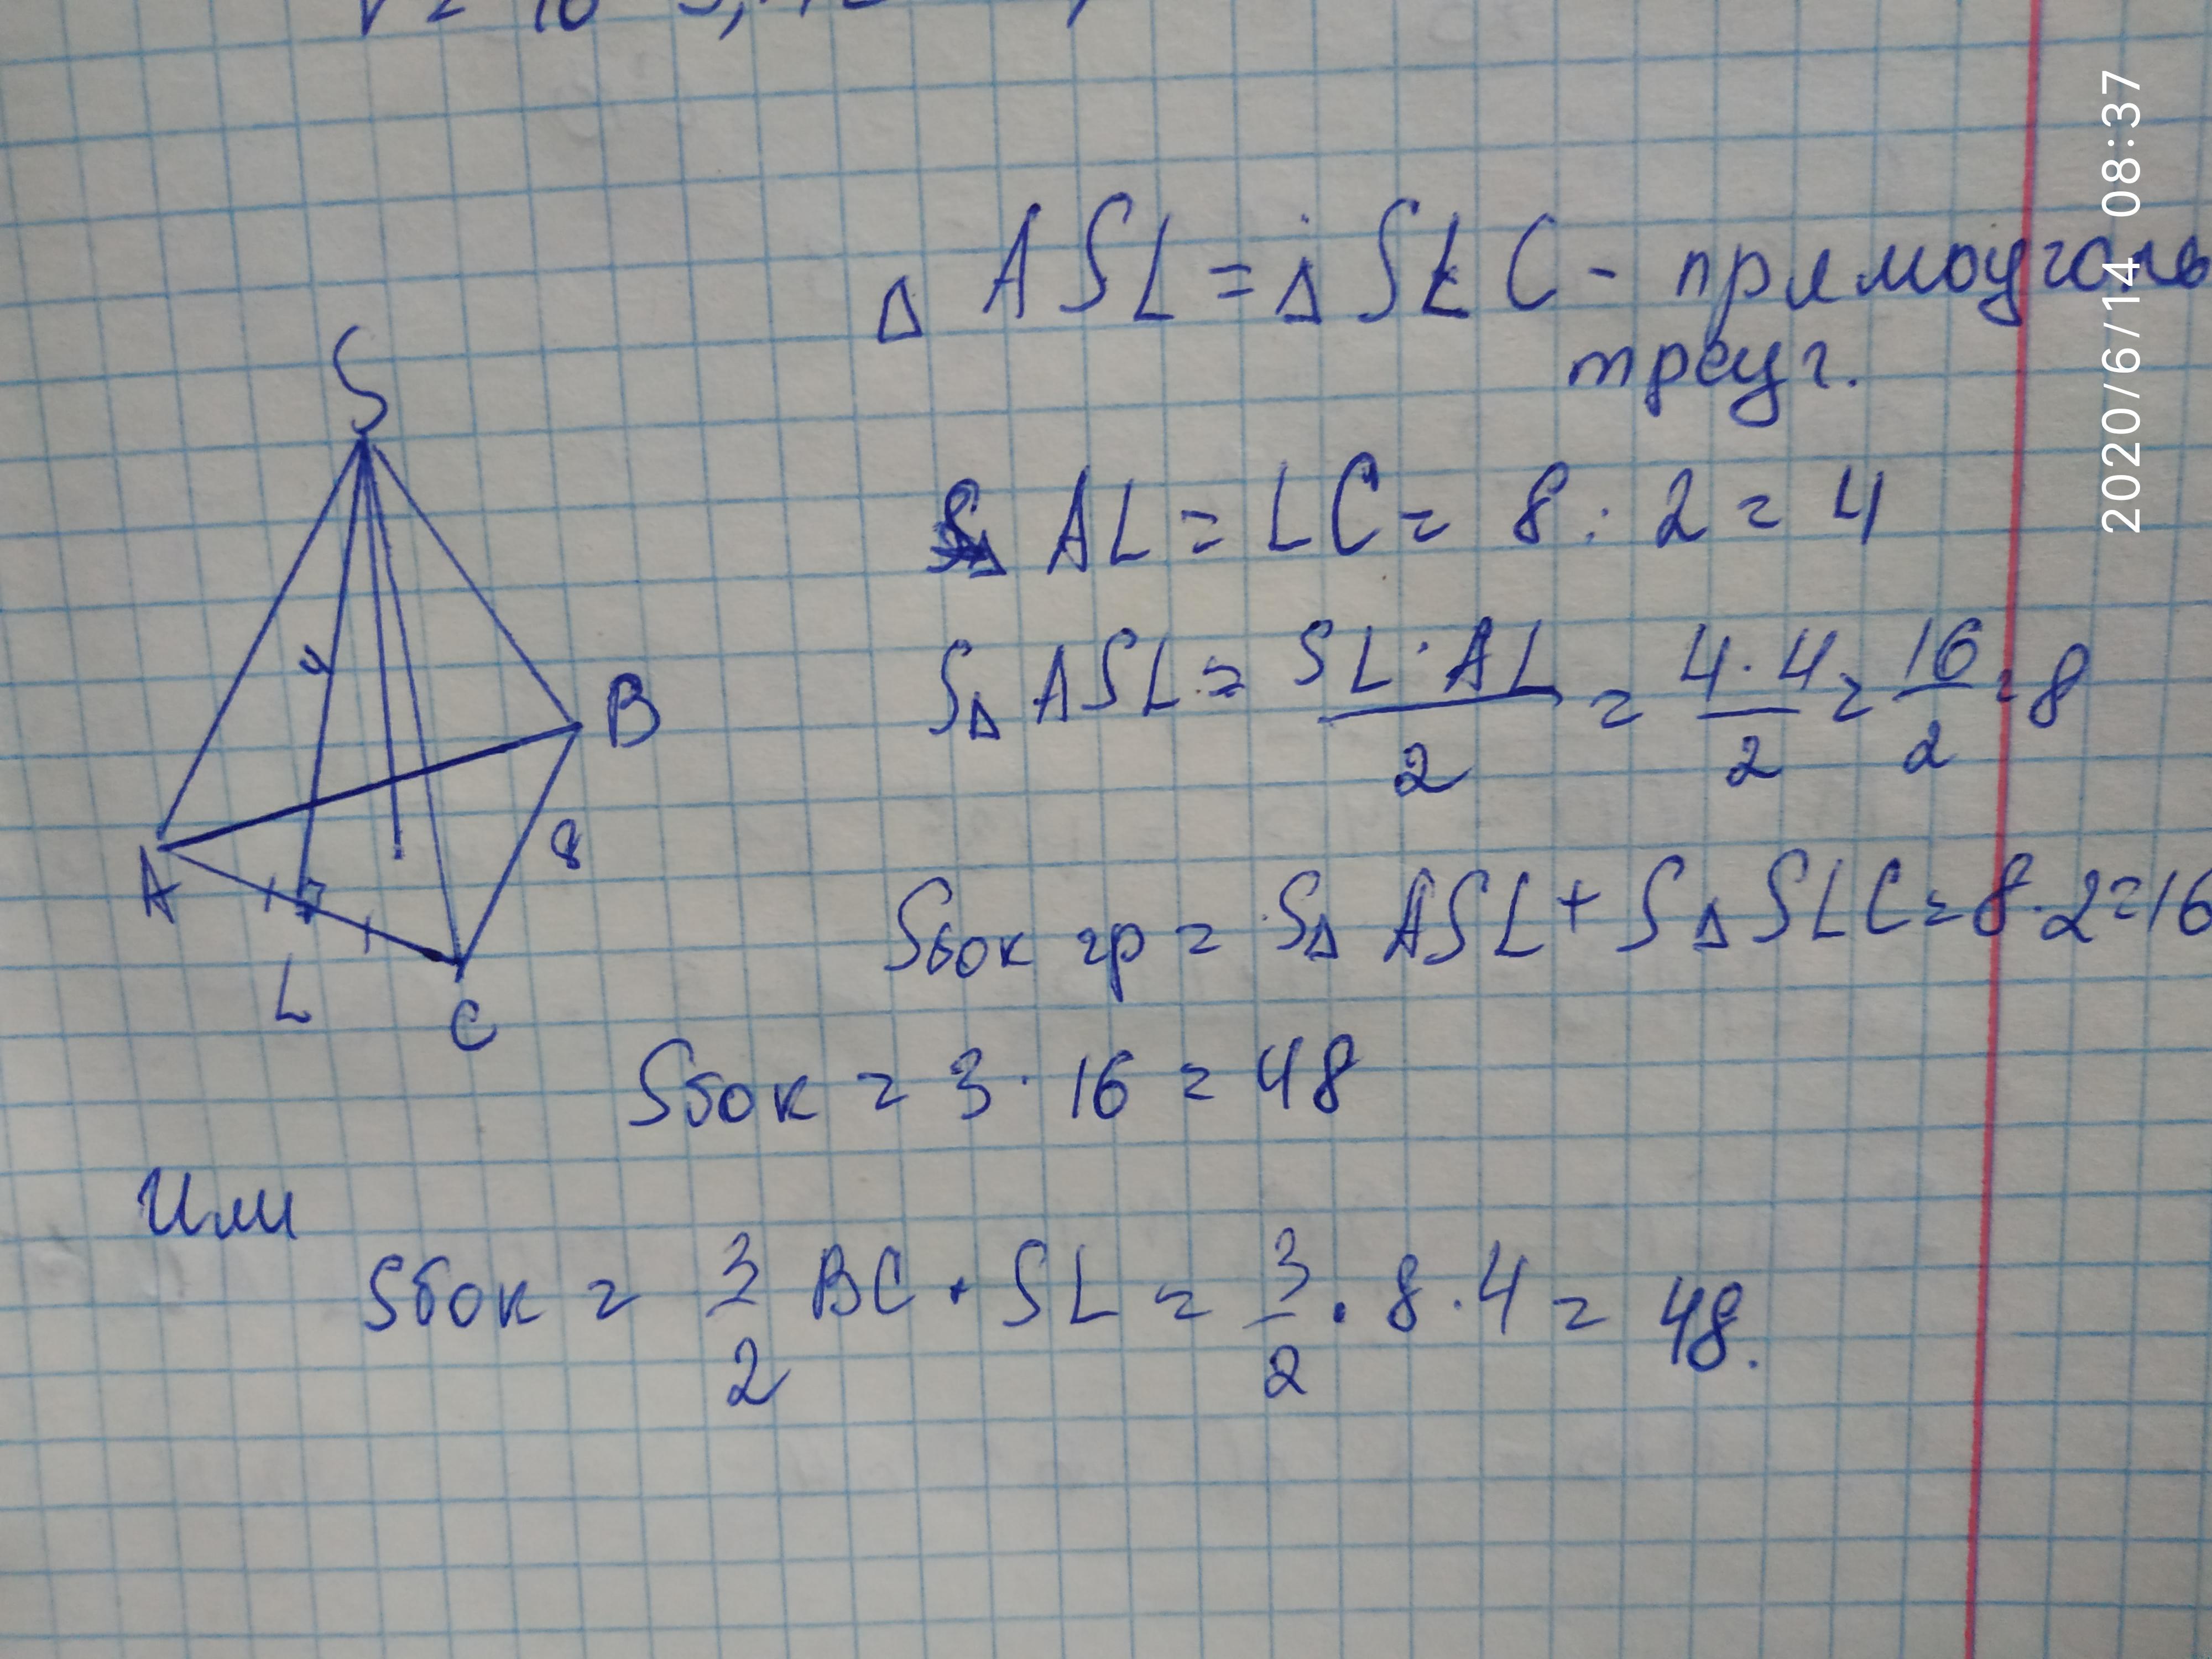 △ ASL = △ SLC - прямоуголь
треуг.
S
AL = LC = 8 : 2 = 4
S△ ASL = SL · AL / 2 = 4 · 4 / 2 = 16 / 2 = 8
4
B
8
A
Sбок гр = S△ ASL + S△ SLC = 8 · 2 = 16
L
C
Sбок = 3 · 16 = 48
Или
Sбок = 3/2 BC · SL = 3/2 · 8 · 4 = 48.
2020/6/14 08:37